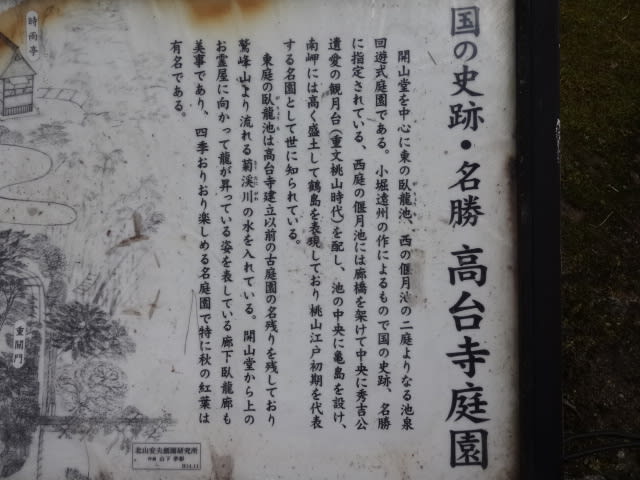 国の史跡・名勝 高台寺庭園
開山堂を中心に東の臥龍池、西の偃月池の二庭よりなる池泉
回遊式庭園である。小堀遠州の作によるもので国の史跡、名勝
に指定されている、西庭の偃月池には廊橋を架けて中央に秀吉公
遺愛の観月台(重文桃山時代)を配し、池の中央に亀島を設け、
南岬には高く盛土して鶴島を表現しており桃山江戸初期を代表
する名園として世に知られている。
東庭の臥龍池は高台寺建立以前の古庭園の名残りを残しており
鷲峰山より流れる菊渓川の水を入れている。開山堂から上の
お霊屋に向かって龍が昇っている姿を表している廊下臥龍廊も
美事であり、四季おりおり楽しめる名庭園で特に秋の紅葉は
有名である。
時雨亭
重関門
北山安夫庭園研究所
作画 山下 孝彰
H14.11